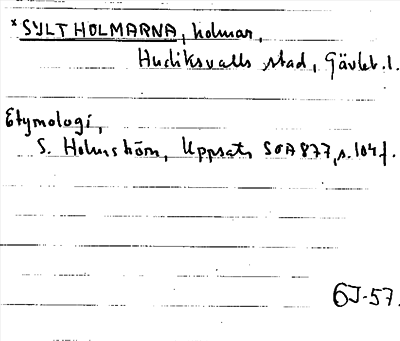 *SYLTHOLMARNA, holmar,
Hudiksvalls stad, Gävleb. l.
Etymologi,
S. Holmström, Uppsats, SOA 877, s. 104 f.
GJ-57.